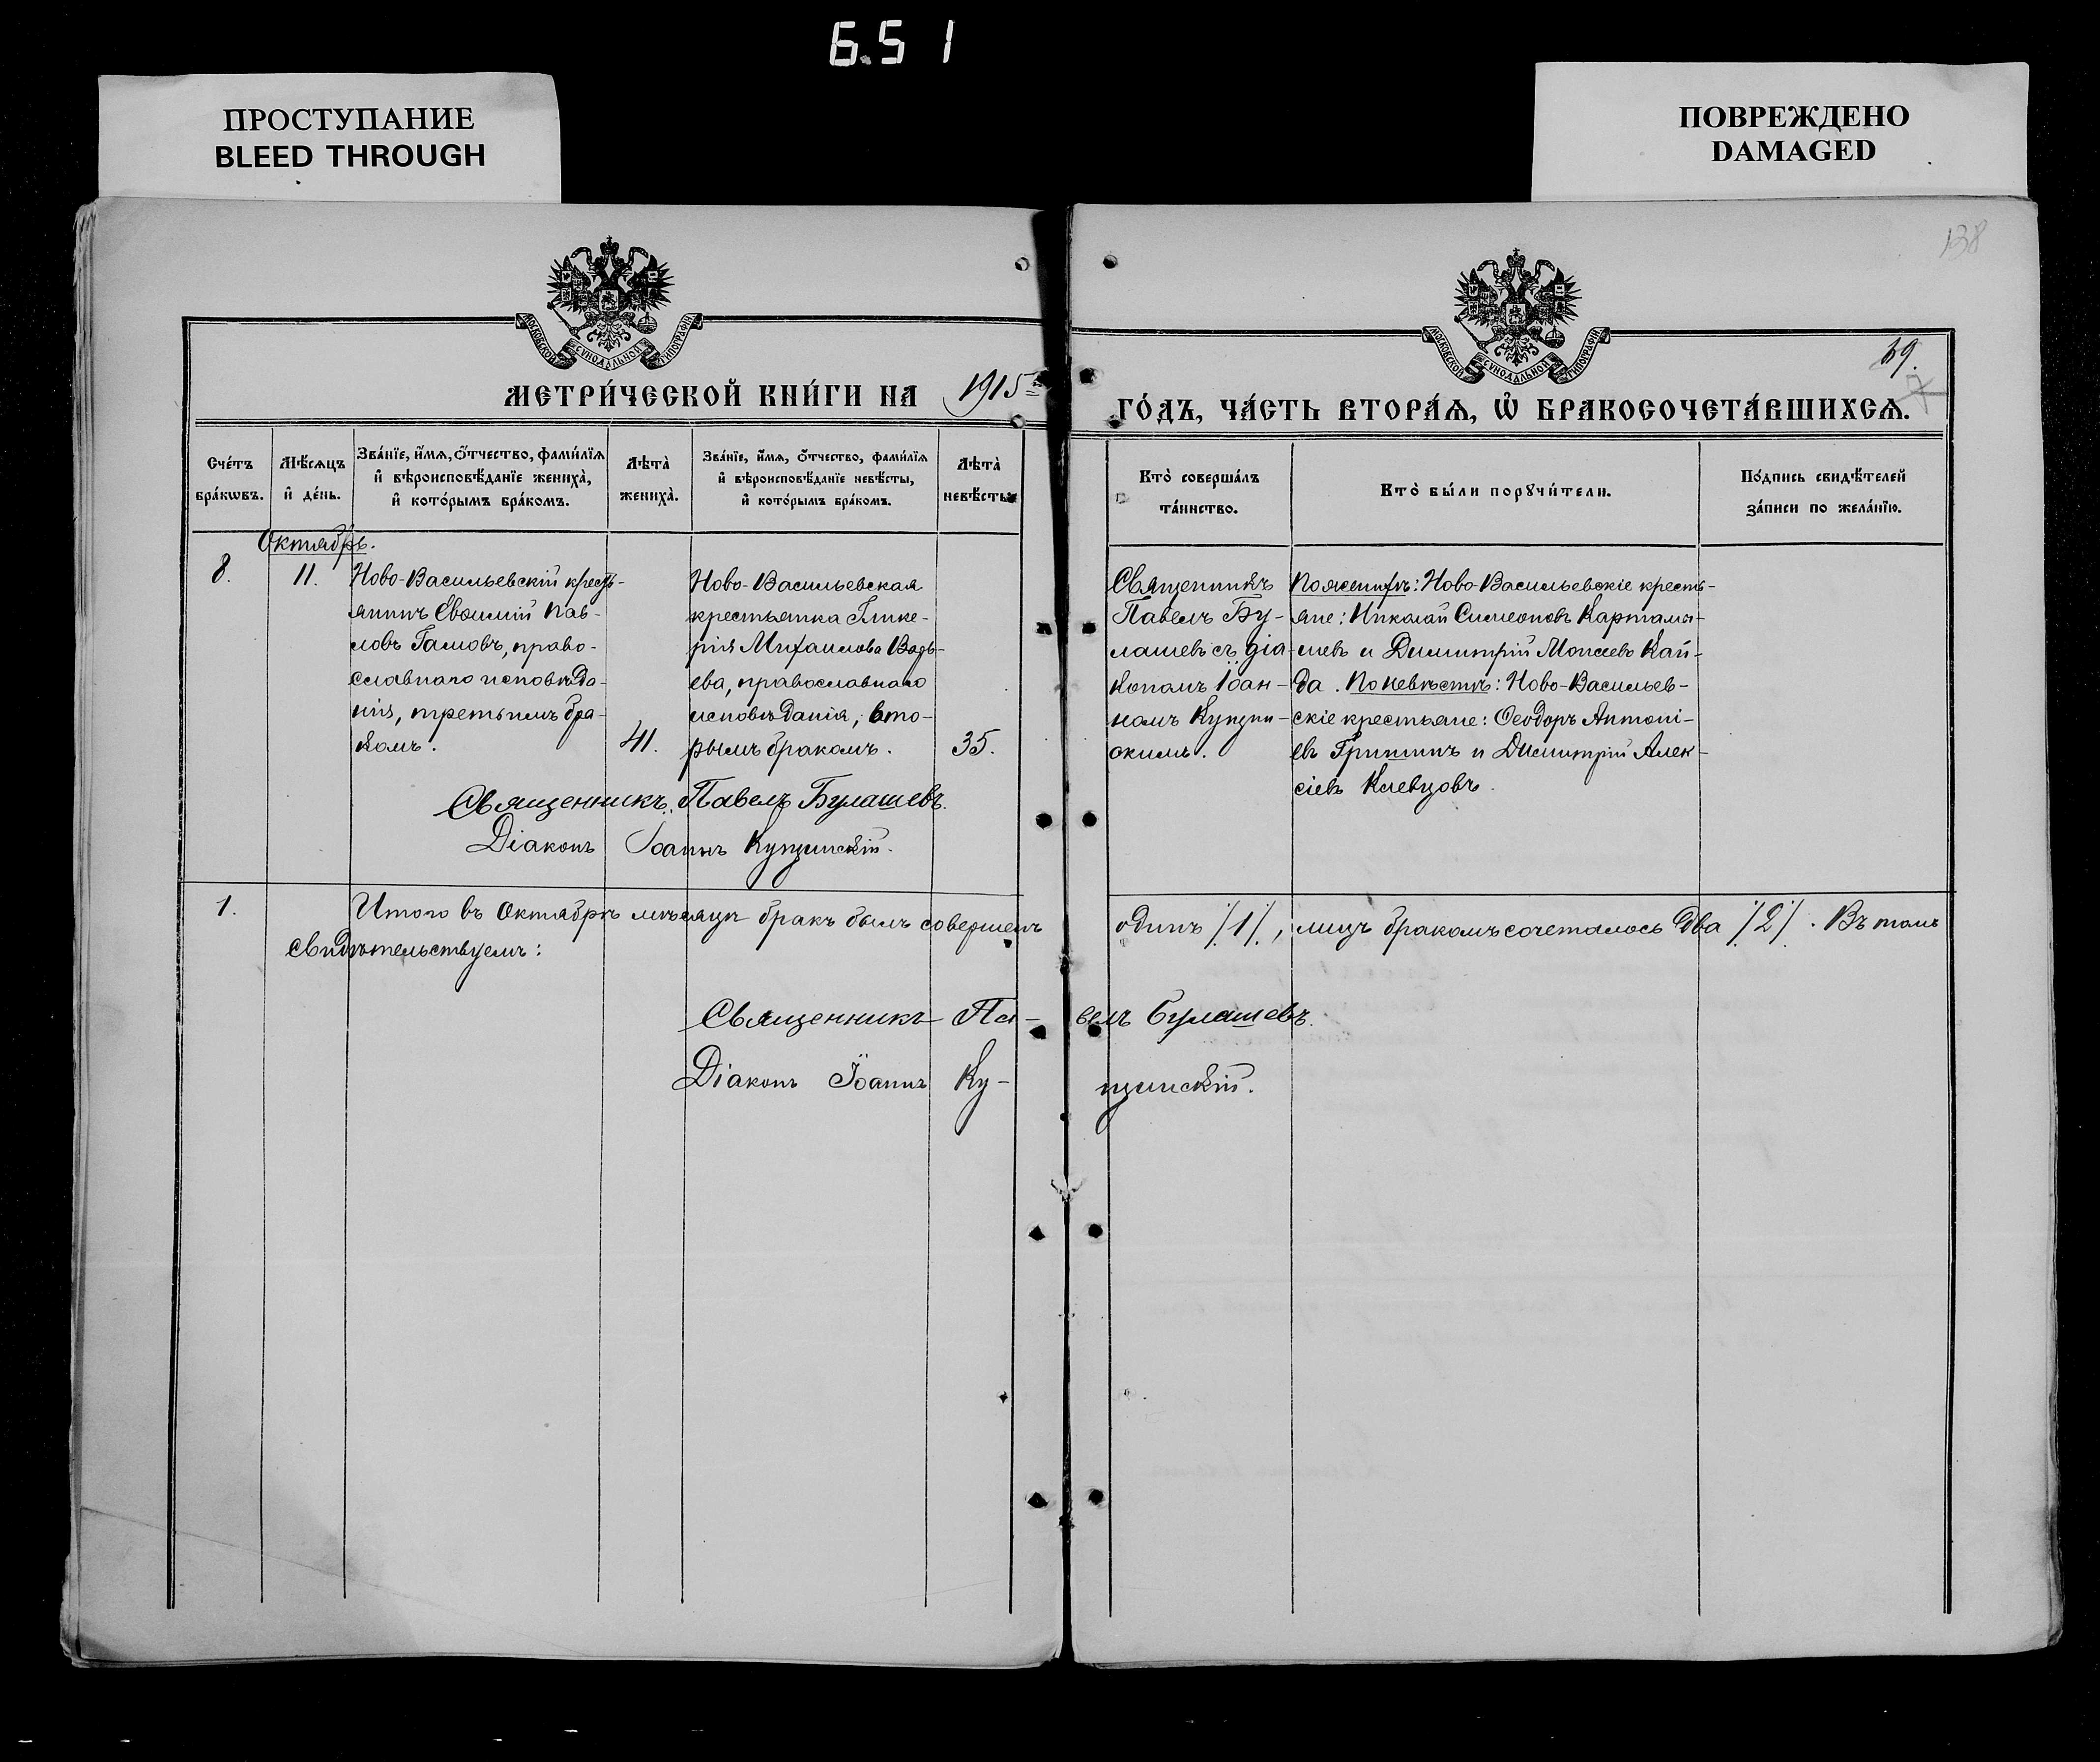 6.5 1
ПРОСТУПАНИЕ
BLEED THROUGH
ПОВРЕЖДЕНО
DAMAGED
138
МОСКОВСКОЙ СѴНОДАЛЬНОЙ ТИПОГРАФІИ
МОСКОВСКОЙ СѴНОДАЛЬНОЙ ТИПОГРАФІИ
МЕТРИ́ЧЕСКОЙ КНИ́ГИ НА 1915
ГО́ДЪ, ЧА́СТЬ ВТОРА́Ѧ, Ѡ҆ БРАКОСОЧЕТА́ВШИХСѦ.
Сче́тъ
бра́кѡвъ.
Мѣ́сѧцъ
и҆ де́нь.
Зва́нїе, и҆́мѧ, ѻ҆́тчество, фами́лїѧ
и҆ вѣроисповѣ́данїе жениха̀,
и҆ кото́рымъ бра́комъ.
Лѣта̀
жениха̀.
Зва́нїе, и҆́мѧ, ѻ҆́тчество, фами́лїѧ
и҆ вѣроисповѣ́данїе невѣ́сты,
и҆ кото́рымъ бра́комъ.
Лѣта̀
невѣ́сты.
Кто̀ соверша́лъ
та́инство.
Кто̀ бы́ли порꙋчи́тели.
По́дпись свидѣ́телей
за́писи по жела́нїю.
Октябрь.
8.
11.
Ново-Васильевскій кресть-
янинъ Евѳимій Пав-
ловъ Гамовъ, право-
славнаго исповѣда-
нія, третьимъ бра-
комъ.
41.
Ново-Васильевская
крестьянка Глике-
рія Михаилова
ева, православнаго
исповѣданія, вто-
рымъ бракомъ.
35.
Священникъ
Павелъ Бу-
лашевъ съ діа-
кономъ Іоан-
номъ Купцин-
скимъ.
По женихѣ: Ново-Васильевскіе кресть-
яне: Николай Симеоновъ
и Димитрій Моисеевъ Кай-
да. По невѣстѣ: Ново-Васильев-
скіе крестьяне: Ѳеодоръ Антоні-
евъ Гришинъ и Димитрій Алек-
сіевъ Клевцовъ.
Священникъ Павелъ Булашевъ.
Діаконъ Іоаннъ Купцинскій.
1.
Итого въ Октябрѣ мѣсяцѣ бракъ былъ совершенъ одинъ /1/, лицъ бракомъ сочеталось два /2/. Въ томъ
свидѣтельствуемъ:
Священникъ Павелъ Булашевъ.
Діаконъ Іоаннъ Ку-пцинскій.